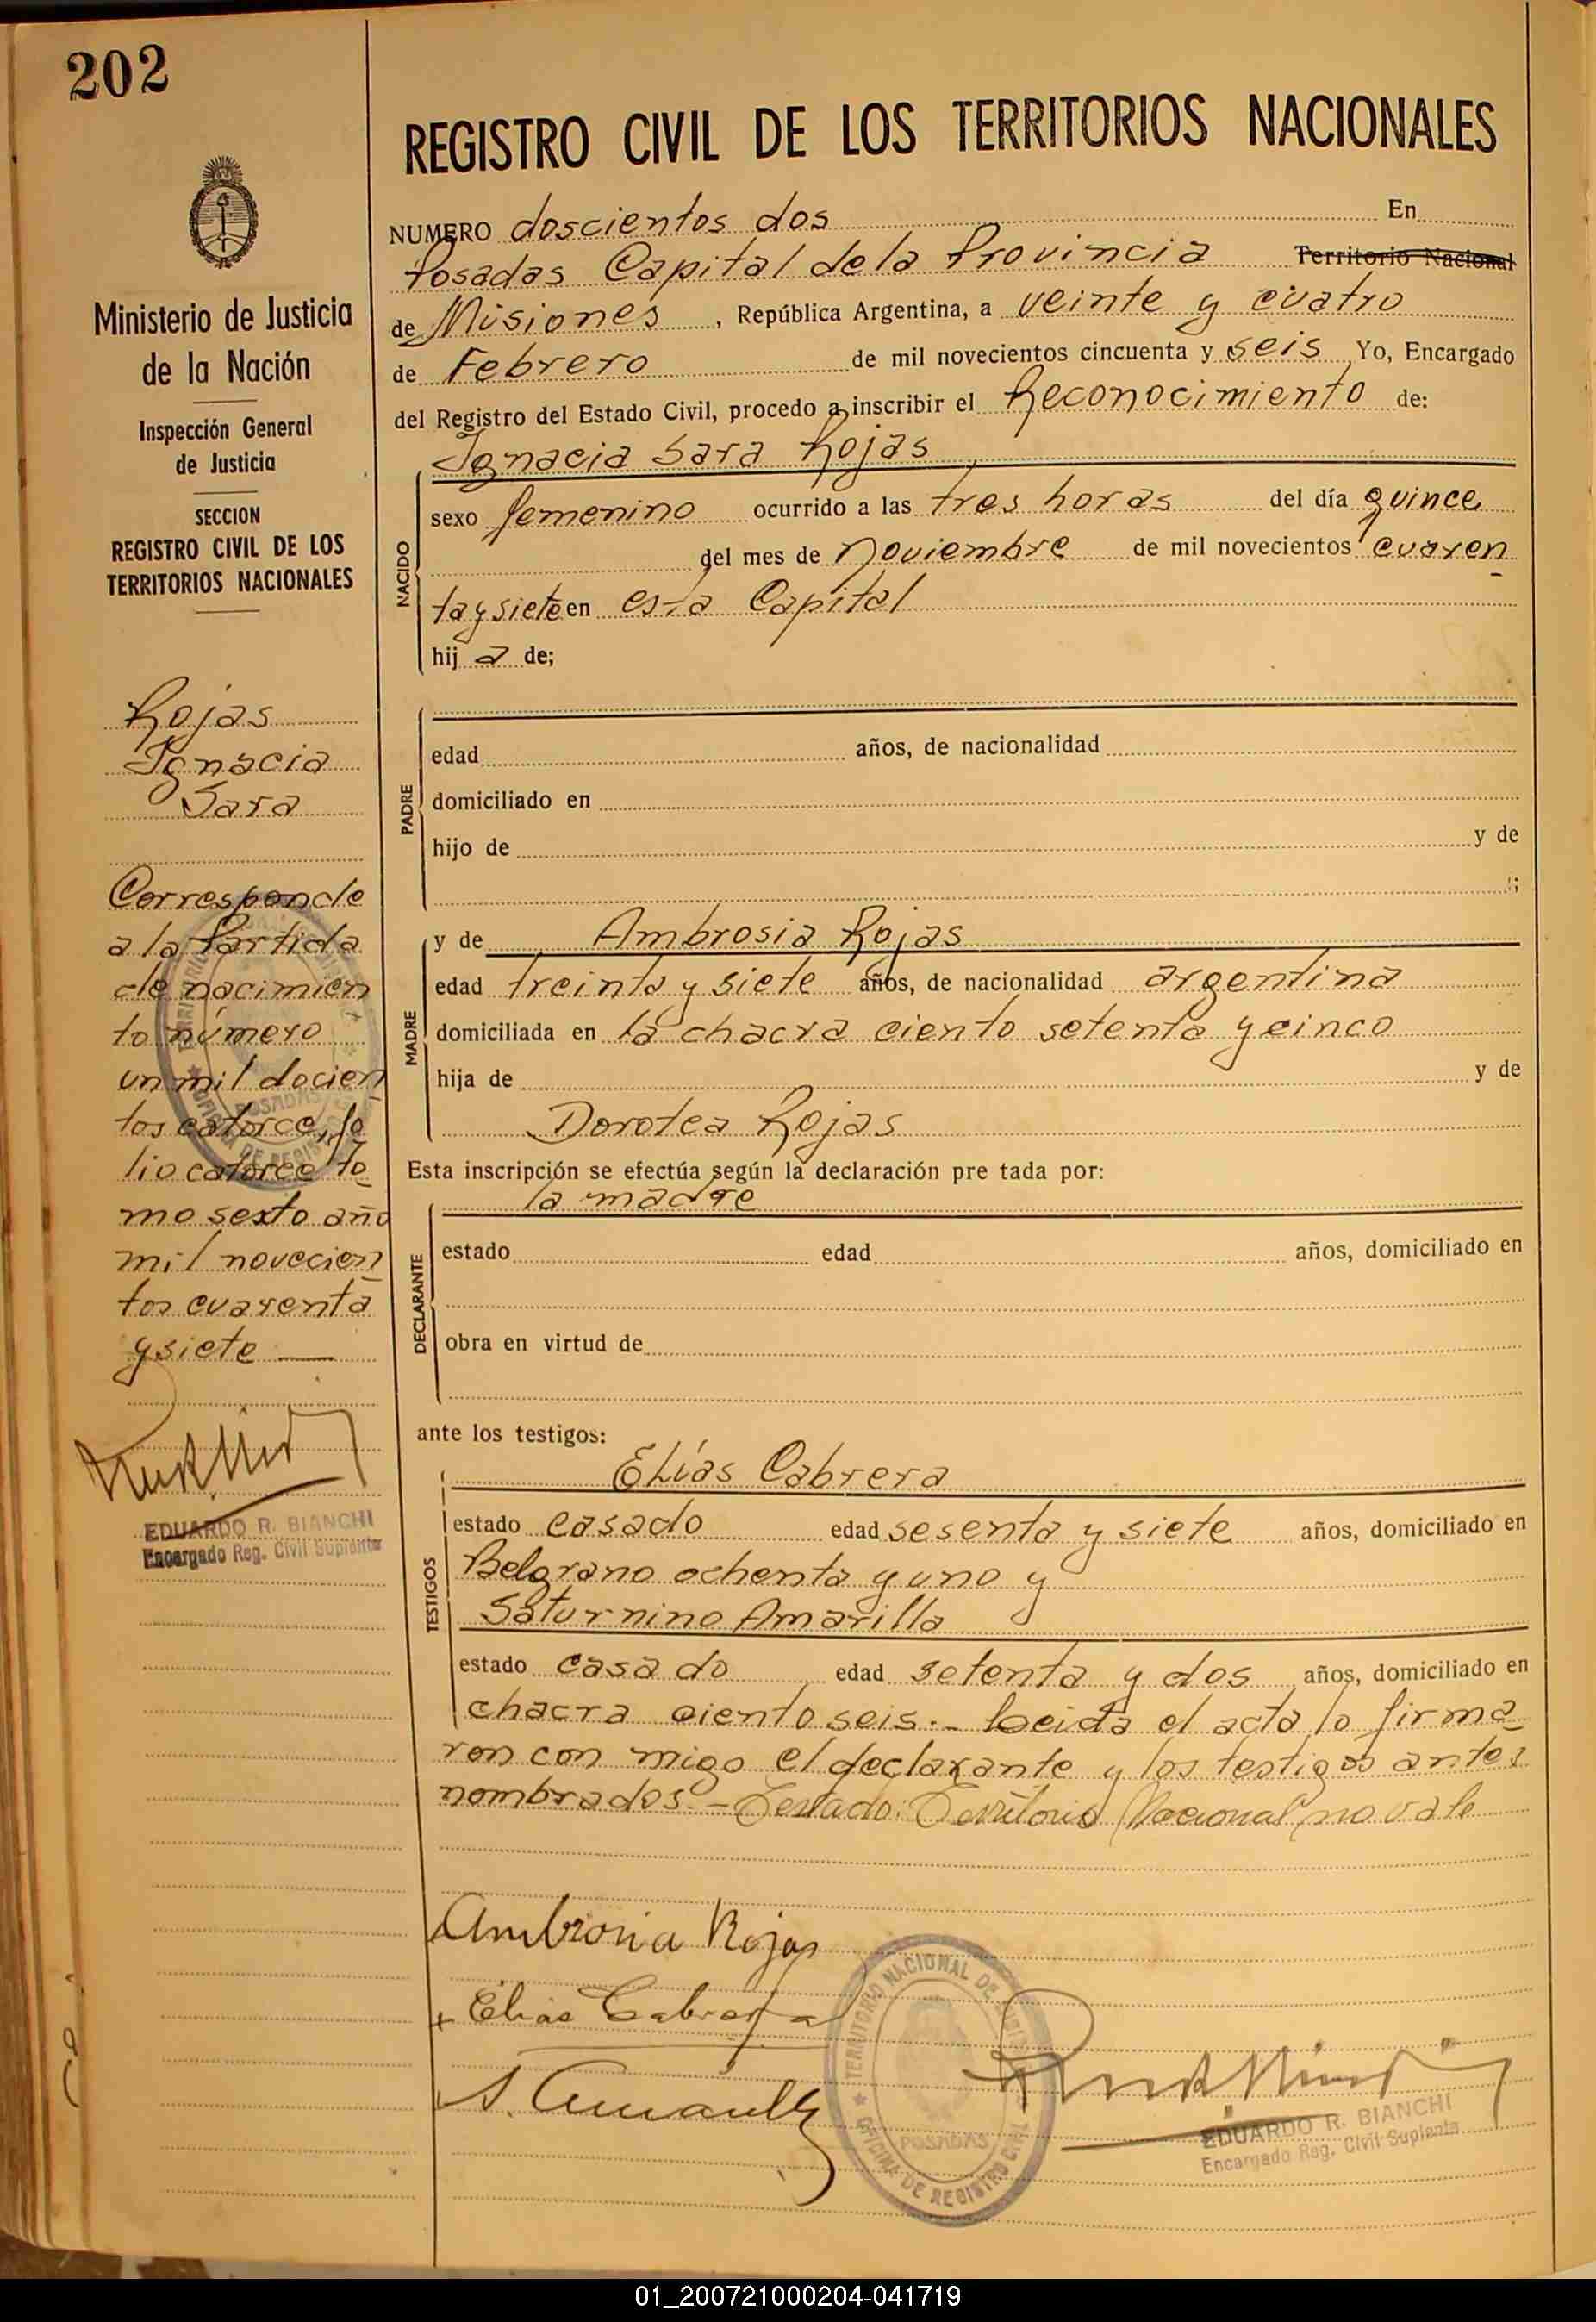 202
Ministerio de Justicia
de la Nación
Inspección General
de Justicia
SECCION
REGISTRO CIVIL DE LOS
TERRITORIOS NACIONALES
Rojas
Ignacia
Sara
Corresponde
a la Partida
de nacimien
to número
un mil docien
tos catorce, fo
lio catorce to
mo sexto año
mil novecien
tos cuarenta
y siete —
EDUARDO R. BIANCHI
Encargado Reg. Civil Suplente
REGISTRO CIVIL DE LOS TERRITORIOS NACIONALES
NUMERO doscientos dos En
Posadas Capital de la Provincia Territorio Nacional
de Misiones, República Argentina, a veinte y cuatro
de Febrero de mil novecientos cincuenta y seis Yo, Encargado
del Registro del Estado Civil, procedo a inscribir el Reconocimiento de:
Ignacia Sara Rojas
NACIDO
sexo femenino ocurrido a las tres horas del día quince
del mes de Noviembre de mil novecientos cuaren
ta y siete en esta Capital
hij a de;
PADRE
edad años, de nacionalidad
domiciliado en
hijo de y de
;
MADRE
y de Ambrosia Rojas
edad treinta y siete años, de nacionalidad argentina
domiciliada en la chacra ciento setenta y cinco
hija de y de
Dorotea Rojas
Esta inscripción se efectúa según la declaración pre tada por:
la madre
DECLARANTE
estado edad años, domiciliado en
obra en virtud de
ante los testigos:
TESTIGOS
Elías Cabrera
estado casado edad sesenta y siete años, domiciliado en
Belgrano ochenta y uno y
Saturnino Amarilla
estado casado edad setenta y dos años, domiciliado en
chacra ciento seis.- Leida el acta lo firma
ron con migo el declarante y los testigos antes
nombrados.- Testado: Territorio Nacional no vale
Ambrosia Rojas
Elias Cabrera
S. Amarilla
TERRITORIO NACIONAL DE
OFICINA DE REGISTRO CIVIL
POSADAS
EDUARDO R. BIANCHI
Encargado Reg. Civil Suplente
01_200721000204-041719